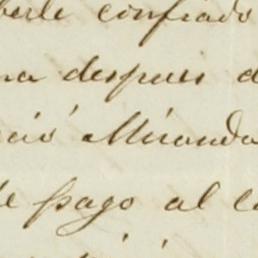 berle confiado
na despues d
ció Miranda
le pago al c